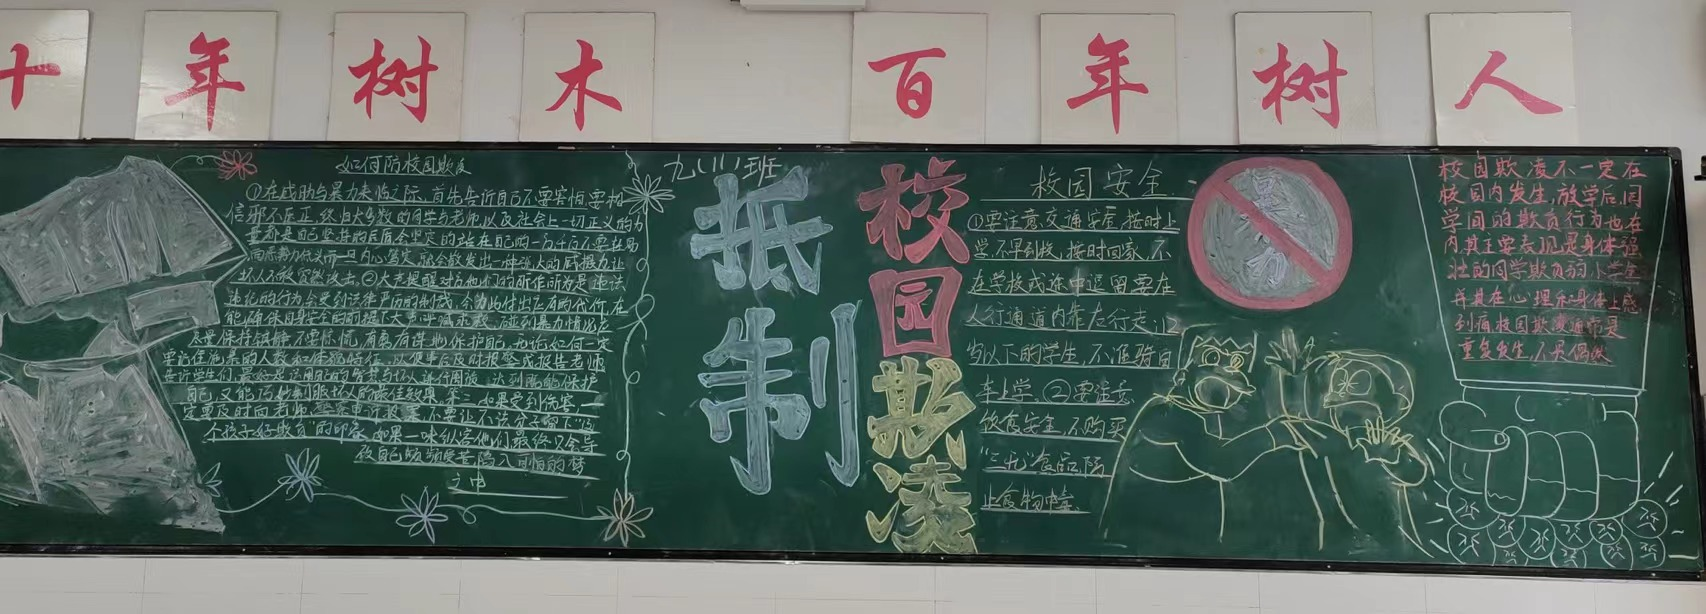 十年树木 百年树人
如何防校园欺凌
①在威胁与暴力来临之际,首先告诉自己不要害怕要相
信邪不压正,终归大多数的同学与老师以及社会上一切正义的力
量都是自己坚强的后盾会坚定的站在自己的一方千万不要轻易
向恶势力低头而一旦内心笃定,就会散发出一种强大的威慑力让
坏人不敢贸然攻击。②大声提醒对方他们的所作所为是违法
违纪的行为会受到法律严厉的制裁,会为此付出应有的代价,在
能确保自身安全的前提下大声呼喊求救,碰到暴力情况
尽量保持镇静不要惊慌
要记住
人数和体貌特征,以便事后及时报警或报告老师
自己,又能巧妙制服坏人的最佳效果 如果受到伤害,一
定要及时向老师、警察申诉报案不要让不法分子留下"这
个孩子好欺负"的印象,如果一味纵容他们最终只会导
致自己频频受苦陷入可怕的梦
之中
九(1)班
抵制
校园欺凌
校园安全
①要注意交通安全,按时上
学,不早到校,按时回家,不
在学校或途中逗留要在
人行通道内靠右行走,12
岁以下的学生,不准骑自
车上学,②要注意
饮食安全,不购买
"三无"食品,防
止食物中毒
暴力
校园欺凌不一定在
校园内发生,放学后,同
学间的欺负行为也在
内,其主要表现是身体强
壮的同学欺负弱小学生
并其在心理和身体上感
到痛校园欺凌通常是
重复发生,不是偶然